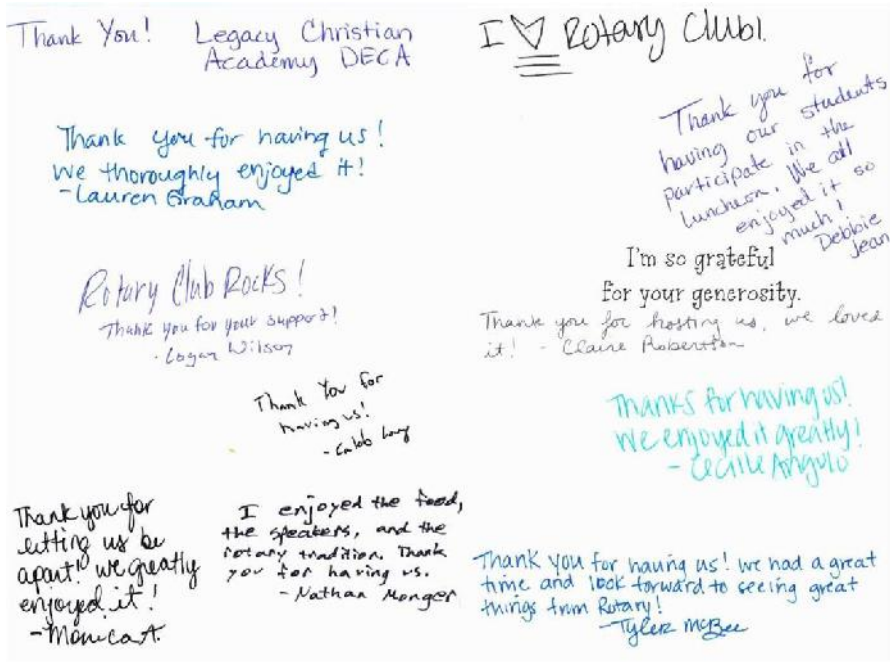 Thank You! Legacy Christian
Academy DECA
Thank you for having us!
We thoroughly enjoyed it!
-Lauren Graham
Rotary Club Rocks!
Thank you for your support!
- Logan Wilson
Thank You for
having us!
- Caleb Long
Thank you for
letting us be
apart! we greatly
enjoyed it!
-Monica A.
I enjoyed the food,
the speakers, and the
rotary tradition. Thank
you for having us.
- Nathan Monger
I ♡ Rotary Club!
Thank you for
having our students
participate in the
luncheon. We all
enjoyed it so
much!
Debbie
Jean
I'm so grateful
for your generosity.
Thank you for hosting us, we loved
it! - Claire Robertson
Thanks for having us!
We enjoyed it greatly!
- Cecile Angulo
Thank you for having us! we had a great
time and look forward to seeing great
things from Rotary!
-Tyler McBee